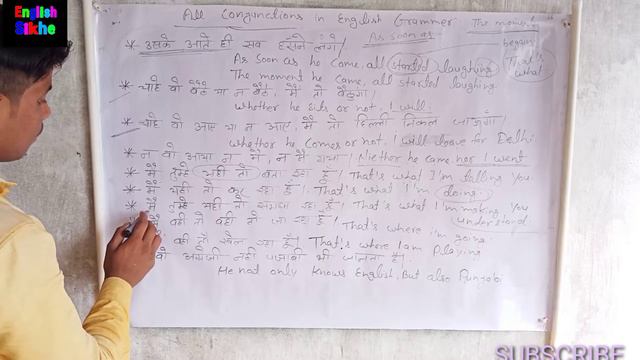 English
Sikhe
All Conjunctions in English Grammer The moment
As soon as
* उसके आते ही सब हँसने लगे।
began
As soon as he came, all started laughing
That's
what
The moment he came, all started laughing.
* चाहे वो बैठे या न बैठे, मैं तो बैठूँगा।
whether he sits or not, I will.
* चाहे वो आए या न आए, मैं तो दिल्ली निकल जाऊँगा।
whether he comes or not, I will leave for Delhi.
* न वो आया न मैं, न मैं गया। Niether he came nor I went
* मैं तुम्हें यही तो बता रहा हूँ। That's what I'm telling you.
* मैं यही तो कर रहा हूँ। That's what I'm doing.
* मैं तुम्हें यही तो समझा रहा हूँ। That's what I'm making you understand
मैं वही तो जा रहा हूँ। That's where i'm going.
वही तो खेल रहा हूँ। That's where I am Playing
वो अंग्रेजी नही पंजाबी भी जानता है।
He not only knows English, But also Punjabi
SUBSCRIBE